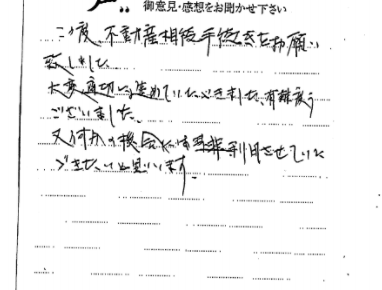 御意見・感想をお聞かせ下さい
この度、不動産相続手続きをお願い
致しました。
大変適切に進めていただきました、有難う
ございました。
又何かの機会には是非利用させていた
だきたいと思います。